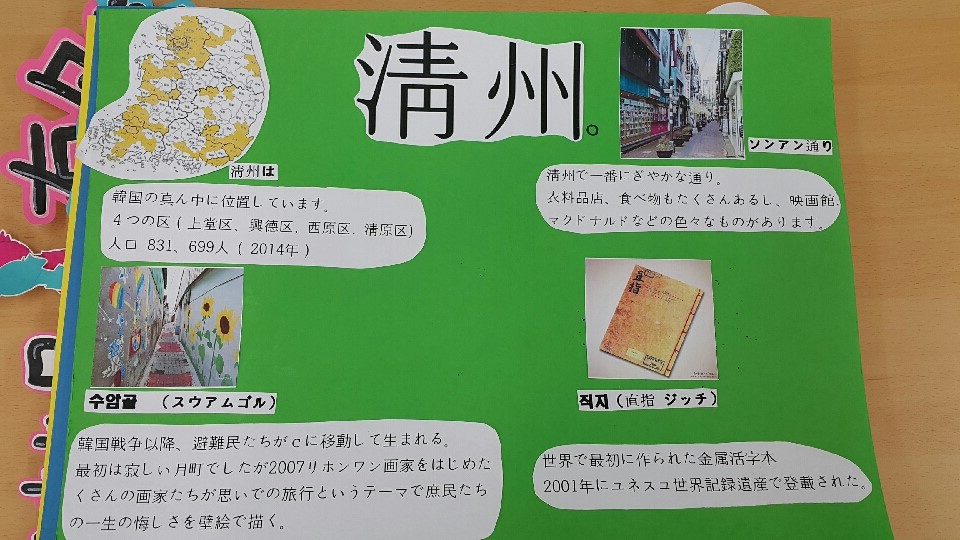 清州。
清州は
韓国の真ん中に位置しています。
4つの区(上堂区、興徳区、西原区、清原区)
人口 831、699人(2014年)
ソンアン通り
清州で一番にぎやかな通り。
衣料品店、食べ物もたくさんあるし、映画館、
マクドナルドなどの色々なものがあります。
수암골 (スウアムゴル)
韓国戦争以降、避難民たちがcに移動して生まれる。
最初は寂しい月町でしたが2007リホンワン画家をはじめた
くさんの画家たちが思いでの旅行というテーマで庶民たち
の一生の悔しさを壁絵で描く。
直指
직지(直指 ジッチ)
世界で最初に作られた金属活字本
2001年にユネスコ世界記録遺産で登載された。